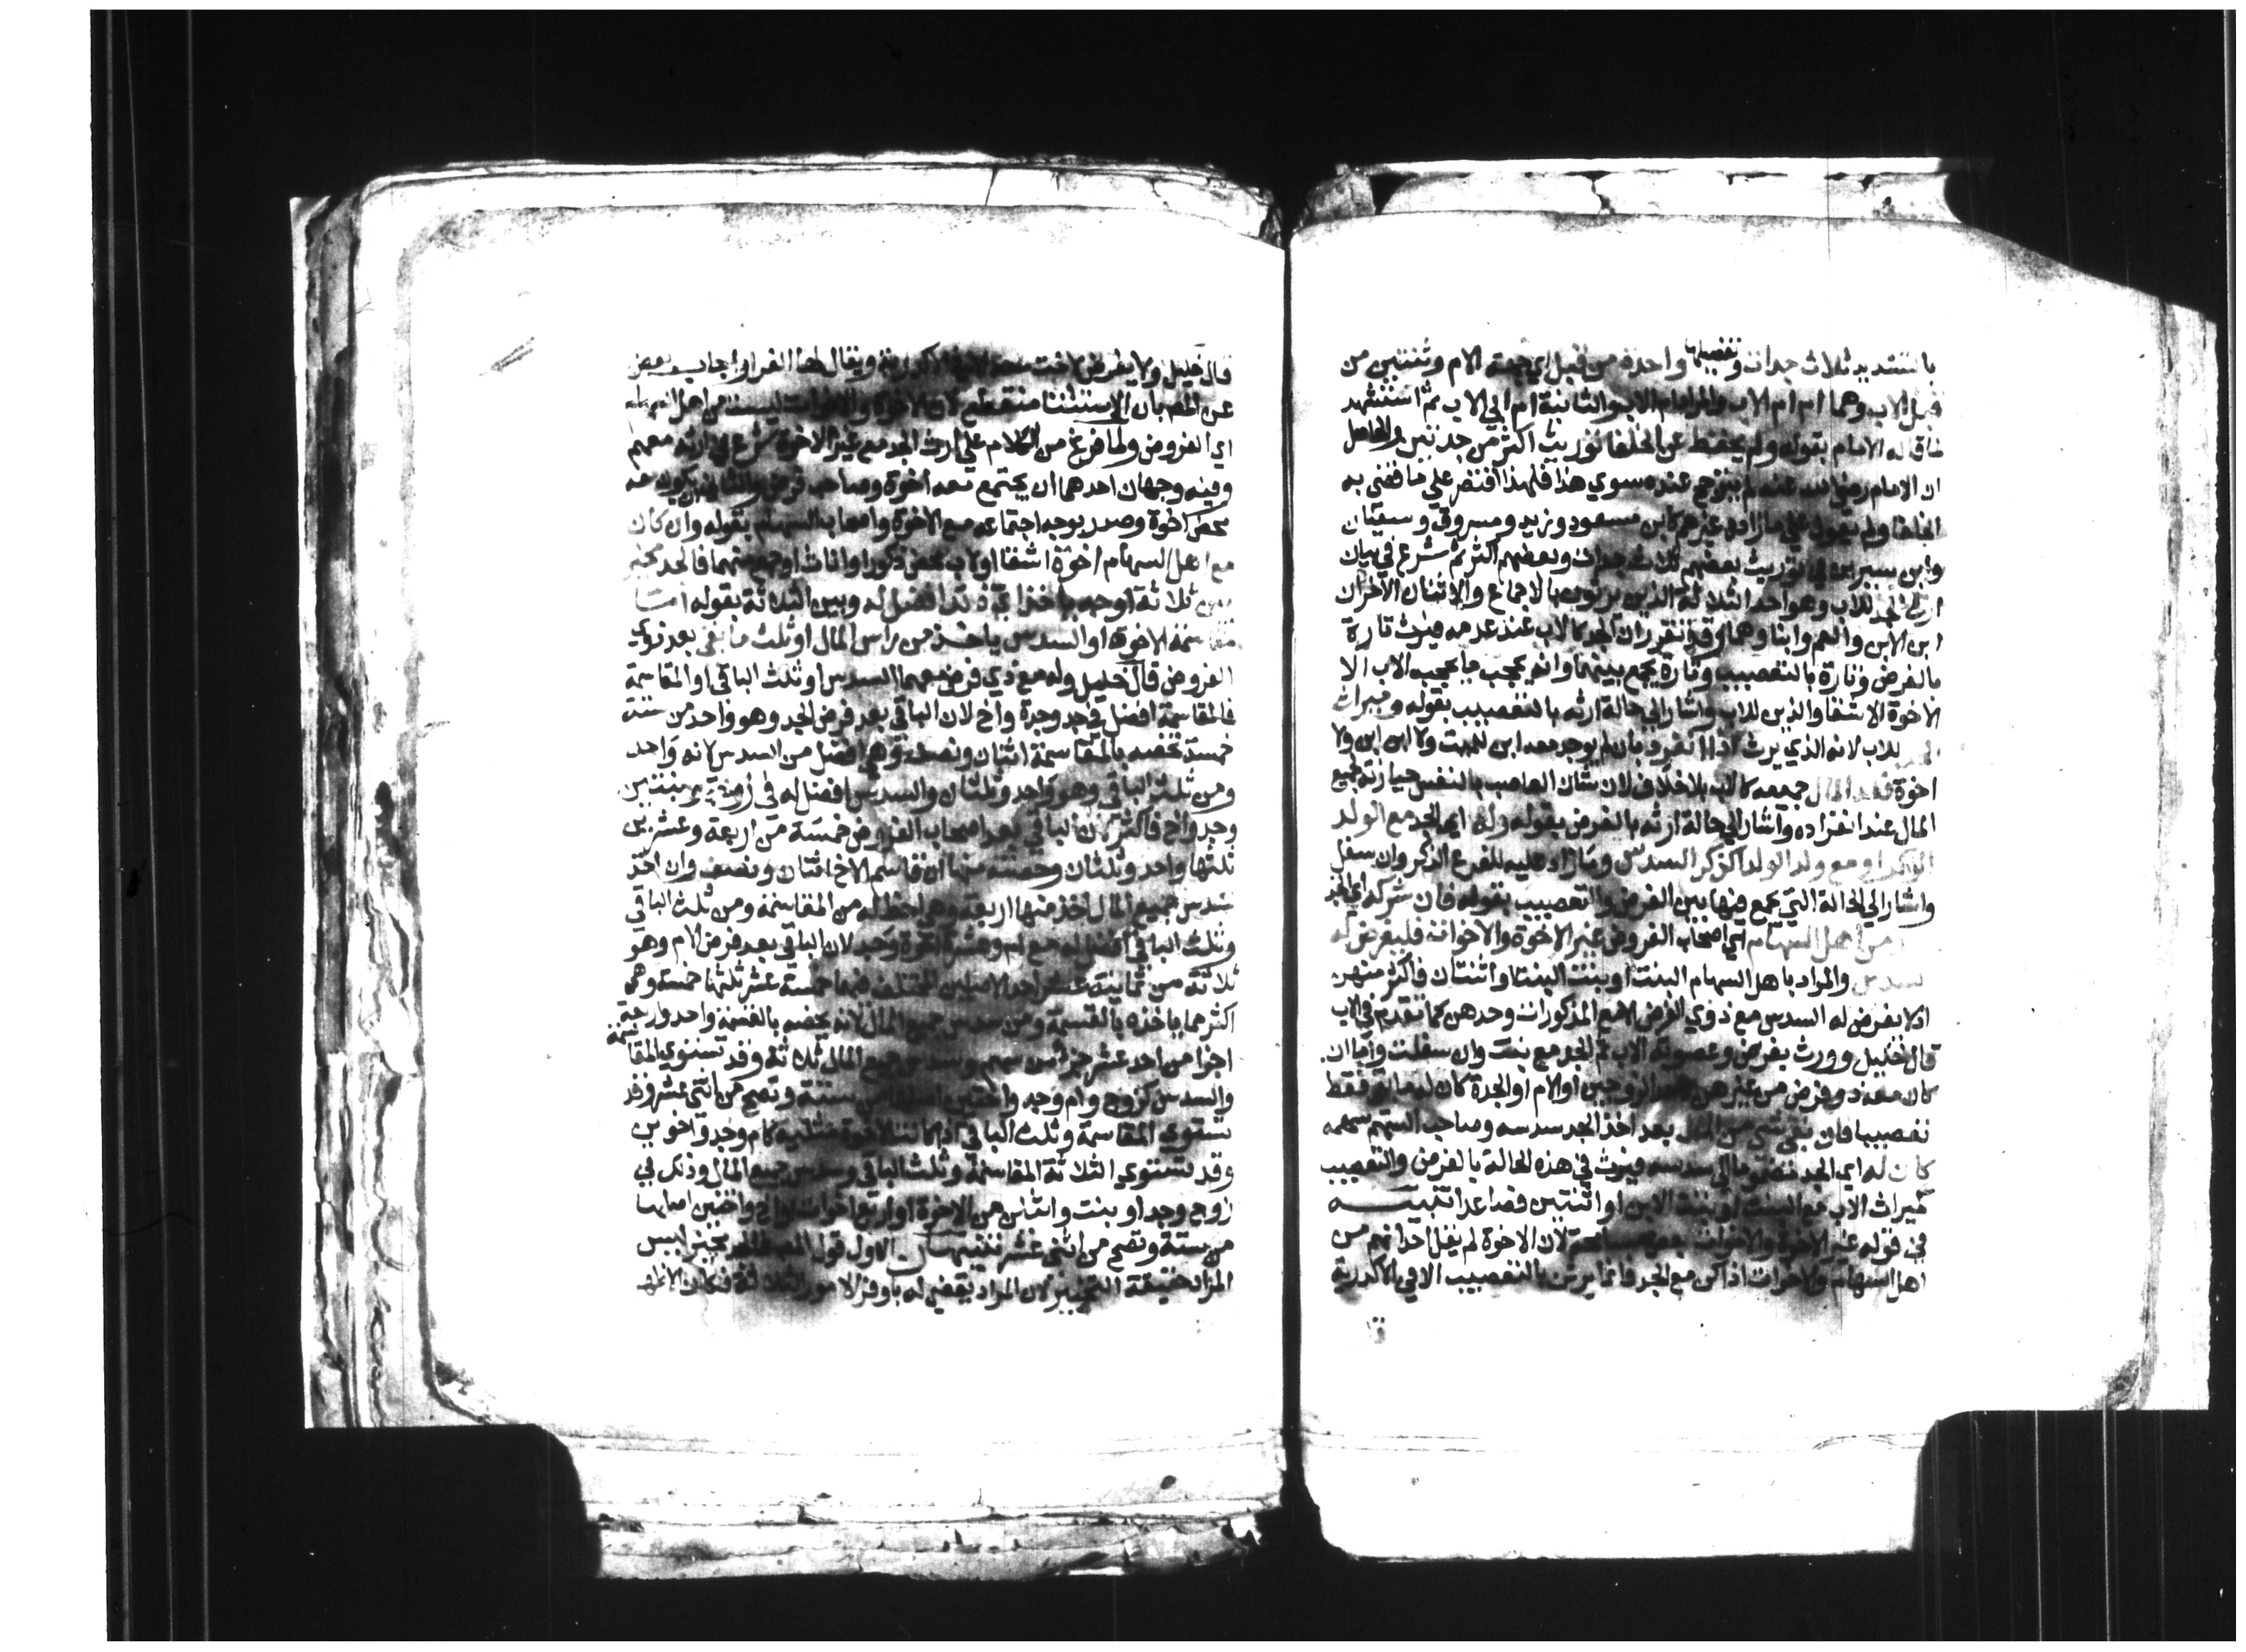 بالتشديد ثلاث جدات وتفصيلها واحدة من قبل اي جهة الام وثنتين من
قبل الاب وهما ام ام الاب والمراد ام الاب والثانية ام ابي الاب ثم استشهد
لما قاله الامام بقوله ولم يحفظ عن الخلفا توريث اكثر من جدتين والحاصل
ان الامام رضي الله عنه لم يترجح عنده سوي هذا فلهذا اقتصر علي ما قضي به
الخلفا ولم يعول علي ما زاده غيرهم كابن مسعود وزيد ومسروق وسفيان
وابن سيرين في توريث بعضهم ثلاث جدات وبعضهم اكثر ثم شرع في بيان
ارث الجد للاب وهو احد الثلاثة الذين يرثون بالاجماع والاثنان الاخران
ابن الابن وابن العم وابناوهما وقد تقرر ان الجد كالاب عند عدمه فيرث تارة
بالفرض وتارة بالتعصيب وتارة يجمع بينهما وانه يحجب ما يحجب الاب الا
الاخوة الاشقا والذين للاب واشار الي حالة ارثه بالتعصيب بقوله وميراث
للاب لانه الذي يرث اذا انفرد بان لم يوجد معه ابن للميت ولا ابن ابن ولا
اخوة فله المال جميعه كالاب بلا خلاف لان شان العاصب بالنفس حيازته جميع
المال عند انفراده واشار الي حالة ارثه بالفرض بقوله وله اي الجد مع الولد
الذكر او مع ولد الولد الذكر السدس وما زاد عليه للفرع الذكر وان سفل
واشار الي الحالة التي يجمع فيها بين الفرض والتعصيب بقوله فان شركه اي الجد
من اهل السهام اي اصحاب الفروض غير الاخوة والاخوات فليفرض له
سدس والمراد باهل السهام البنت او بنت البنت او اثنتان فاكثر منهن
اذ لا يفرض له السدس مع ذوي الفرض الا مع المذكورات وحدهن كما تقدم في الاب
قال خليل وورث بفرض وعصوبة الاب ثم الجد مع بنت وان سفلت واما ان
كان معه ذو فرض من غيرهن الزوجين او الام او الجدة كان له ما بقي فقط
تعصيبا فان بقي شي من المال بعد اخذ الجد سدسه وصاحب السهم سهمه
كان له اي الجد ما الي سدسه فيرث في هذه الحالة بالفرض والتعصيب
كميراث الاب مع البنت او بنت الابن او اثنتين فصاعدا تنبيه
في قوله غير الاخوة والاخوات لان الاخوة لم يقل احد انهم من
اهل السهام والاخوات اذا كن مع الجد فانما يرثن بالتعصيب الا في الاكدرية
قا
قال خليل ولا يفرض لاخت معه الا في الاكدرية ويقال لها الغرا واجاب بعض
عن المص بان الاستثنا منقطع لان الاخوة والاخوات ليست من اهل السهام
اي الفروض ولما فرغ من الكلام علي ارث الجد مع غير الاخوة شرع في ارثه معهم
وفيه وجهان احدهما ان يجتمع معه اخوة وصاحب فرض والثاني ان يكون معه
محض اخوة وصدر بوجه اجتماعه مع الاخوة واصحاب السهام بقوله وان كان
مع اهل السهام اخوة اشقا او لاب محض ذكورا او اناثا او جمع منهما فالجد مخير
بين ثلاثة اوجه ياخذ اي ذلك افضل له وبين الثلاثة بقوله اما
مقاسمة الاخوة او السدس ياخذه من راس المال او ثلث ما بقي بعد ذوي
الفروض قال خليل وله مع ذي فرض معهما السدس او ثلث الباقي او المقاسمة
فالمقاسمة افضل في جد وجدة واخ لان الباقي بعد فرض الجد وهو واحد من ستة
خمسة يخصه بالمقاسمة اثنان ونصف وهي افضل من السدس لانه واحد
ومن ثلث الباقي وهو واحد وثلثان والسدس افضل له في زوجة وبنتين
وجد واخ فاكثر لان الباقي بعد اصحاب الفروض خمسة من اربعة وعشرين
ثلثها واحد وثلثان وحصته منها ان قاسم الاخ اثنان ونصف وان اخذ
سدس جميع المال اخذ منها اربعة وهي احظ له من المقاسمة ومن ثلث الباقي
وثلث الباقي افضل له مع ام وعشرة اخوة وجد لان الباقي بعد فرض الام وهو
ثلاثة من ثمانية عشر احد الاصلين المختلف فيهما خمسة عشر ثلثها خمسة وهي
اكثر مما ياخذه بالقسمة ومن سدس جميع المال لانه يخصه بالقسمة واحد واربعة
اجزا من احد عشر جزا من سهم وسدس جميع المال ثلاثة وقد تستوي المقاسمة
والسدس كزوج وام وجد واختين اصلها من ستة وتصح من اثني عشر وقد
تستوي المقاسمة وثلث الباقي اذا كانت الاخوة مثليه كام وجد واخوين
وقد تستوي الثلاثة المقاسمة وثلث الباقي وسدس جميع المال وذلك في
زوج وجد او بنت واثنان من الاخوة او اربع اخوات او اخ واختين اصلها
من ستة وتصح من اثني عشر تنبيهان الاول قول المص فالجد مخير ليس
المراد حقيقة التخيير لان المراد يقضي له باوفر الامور الثلاثة فكان الاظهر